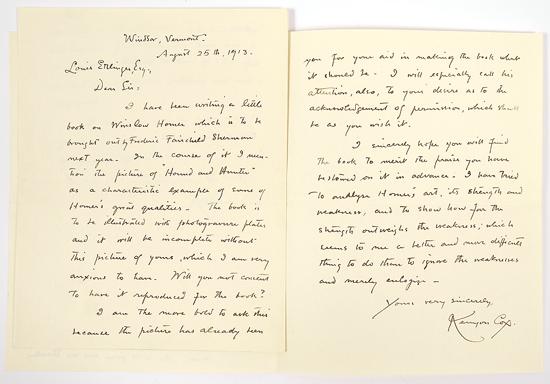 Windsor, Vermont.
August 25th, 1913.
Louis Ettlinger, Esq.,
Dear Sir:
I have been writing a little
book on Winslow Homer which is to be
brought out by Frederic Fairchild Sherman
next year. In the course of it I men-
tion the picture of Hound and Hunter
as a characteristic example of some of
Homer's great qualities. The book is
to be illustrated with photogravure plates
and it will be incomplete without
this picture of yours, which I am very
anxious to have. Will you not consent
to have it reproduced for the book?
I am the more bold to ask this
because the picture has already been
you for your aid in making the book what
it should be. I will especially call his
attention, also, to your desire as to the
acknowledgement of permission, which shall
be as you wish it.
I sincerely hope you will find
the book to merit the praise you have
bestowed on it in advance. I have tried
to analyze Homer's art, its strength and
weakness, and to show how far the
strength outweighs the weakness; which
seems to me a better and more difficult
thing to do than to ignore the weaknesses
and merely eulogize.
Yours very sincerely,
Kenyon Cox.